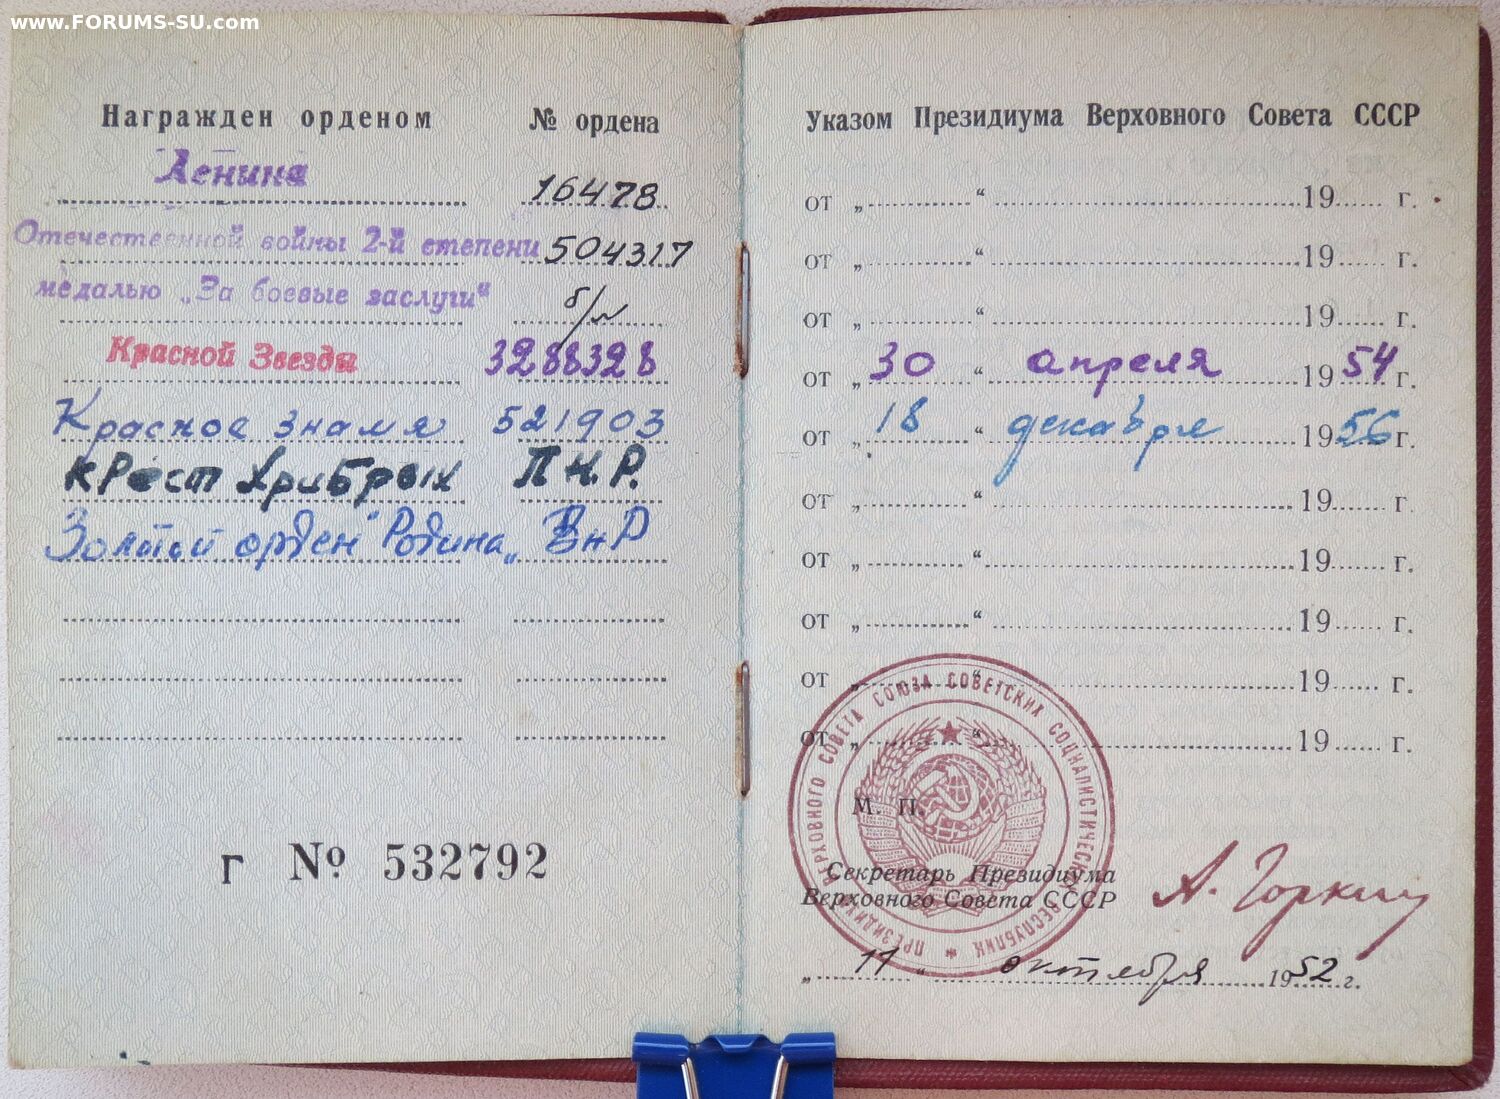 www.FORUMS-SU.com
Награжден орденом № ордена
Ленина 16478
Отечественной войны 2-й степени 504317
медалью „За боевые заслуги“ б/н
Красной Звезды 3288328
Красное знамя 521903
крест Хрибрых П.Н.Р.
Золотой орден "Родина„ ВнР
Г № 532792
Указом Президиума Верховного Совета СССР
от „ “ 19 г.
от „ “ 19 г.
от „ “ 19 г.
от „ 30 “ апреля 19 54 г.
от „ 18 “ декабря 19 56 г.
от „ “ 19 г.
от „ “ 19 г.
от „ “ 19 г.
от „ “ 19 г.
от „ “ 19 г.
ПРЕЗИДИУМ ВЕРХОВНОГО СОВЕТА СОЮЗА СОВЕТСКИХ СОЦИАЛИСТИЧЕСКИХ РЕСПУБЛИК
М. П.
Секретарь Президиума
Верховного Совета СССР
А. Горкин
„ 11 “ октября 1952 г.